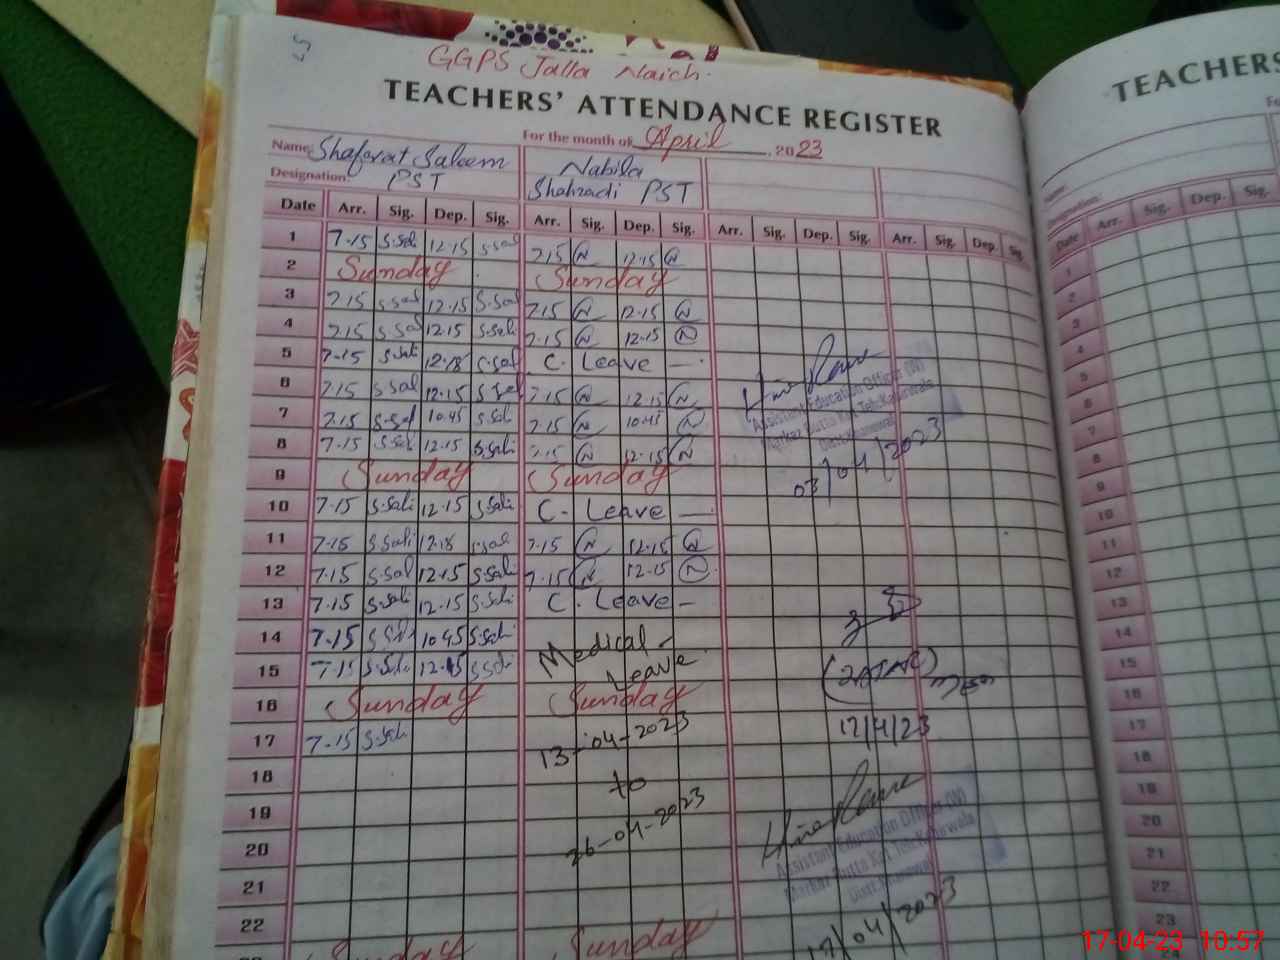 GGPS Jalla Naich.
TEACHERS' ATTENDANCE REGISTER
For the month of April, 2023
Name: Shafavat Saleem Nabila
Designation: PST Shahzadi PST
Date Arr. Sig. Dep. Sig. Arr. Sig. Dep. Sig. Arr. Sig. Dep. Sig. Arr. Sig. Dep. Sig.
1 7-15 S.Sali 12-15 S.Sal 7.15 N 12-15 N
2 Sunday Sunday
3 7.15 S.Sal 12.15 S.Sal 7.15 N 12.15 N
4 7.15 S.Sal 12.15 S.Sali 7.15 N 12.15 N
5 7-15 S.Sali 12.18 S.Sal C. Leave —
6 7.15 S.Sal 12.15 S.Sal 7.15 N 12.15 N
7 7.15 S.Sal 10.45 S.Sali 7.15 N 10.45 N
8 7.15 S.Sali 12.15 S.Sali 7.15 N 12.15 N
9 Sunday Sunday
10 7.15 S.Sali 12.15 S.Sali C. Leave —
11 7.15 S.Sali 12.18 S.Sal 7.15 N 12.15 N
12 7.15 S.Sal 12.15 S.Sali 7.15 N 12.15 N
13 7.15 S.Sali 12.15 S.Sali C. Leave —
14 7.15 S.Sali 10.45 S.Sali Medical -
15 7.15 S.Sali 12.15 S.Sali Leave
16 Sunday Sunday
17 7-15 S.Sali 13-04-2023
18 to
19
20 26-04-2023
21
22
Sunday Sunday
Assistant Education Officer (W)
Markaz Butta Kot Teh: Kabirwala
Distt: Khanewal
03/04/2023
12/4/23
Assistant Education Officer (W)
Markaz Butta Kot Teh: Kabirwala
Distt: Khanewal
17/04/2023
TEACHERS
Name:
Designation:
Date Arr. Sig. Dep. Sig.
1
2
3
4
5
6
7
8
9
10
11
12
13
14
15
16
17
18
19
20
21
22
23
24
17-04-23 10:57